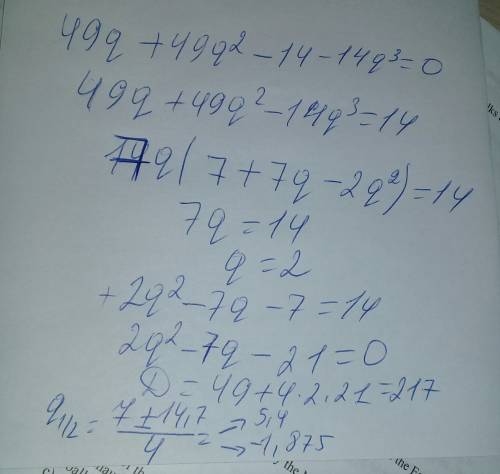 49q + 49q² - 14 - 14q³ = 0
49q + 49q² - 14q³ = 14
7q( 7 + 7q - 2q²) = 14
7q = 14
q = 2
+2q² - 7q - 7 = 14
2q² - 7q - 21 = 0
D = 49 + 4·2·21 = 217
q₁/₂ = (7 ± 14,7)/4 = → 5,4
→ -1,875